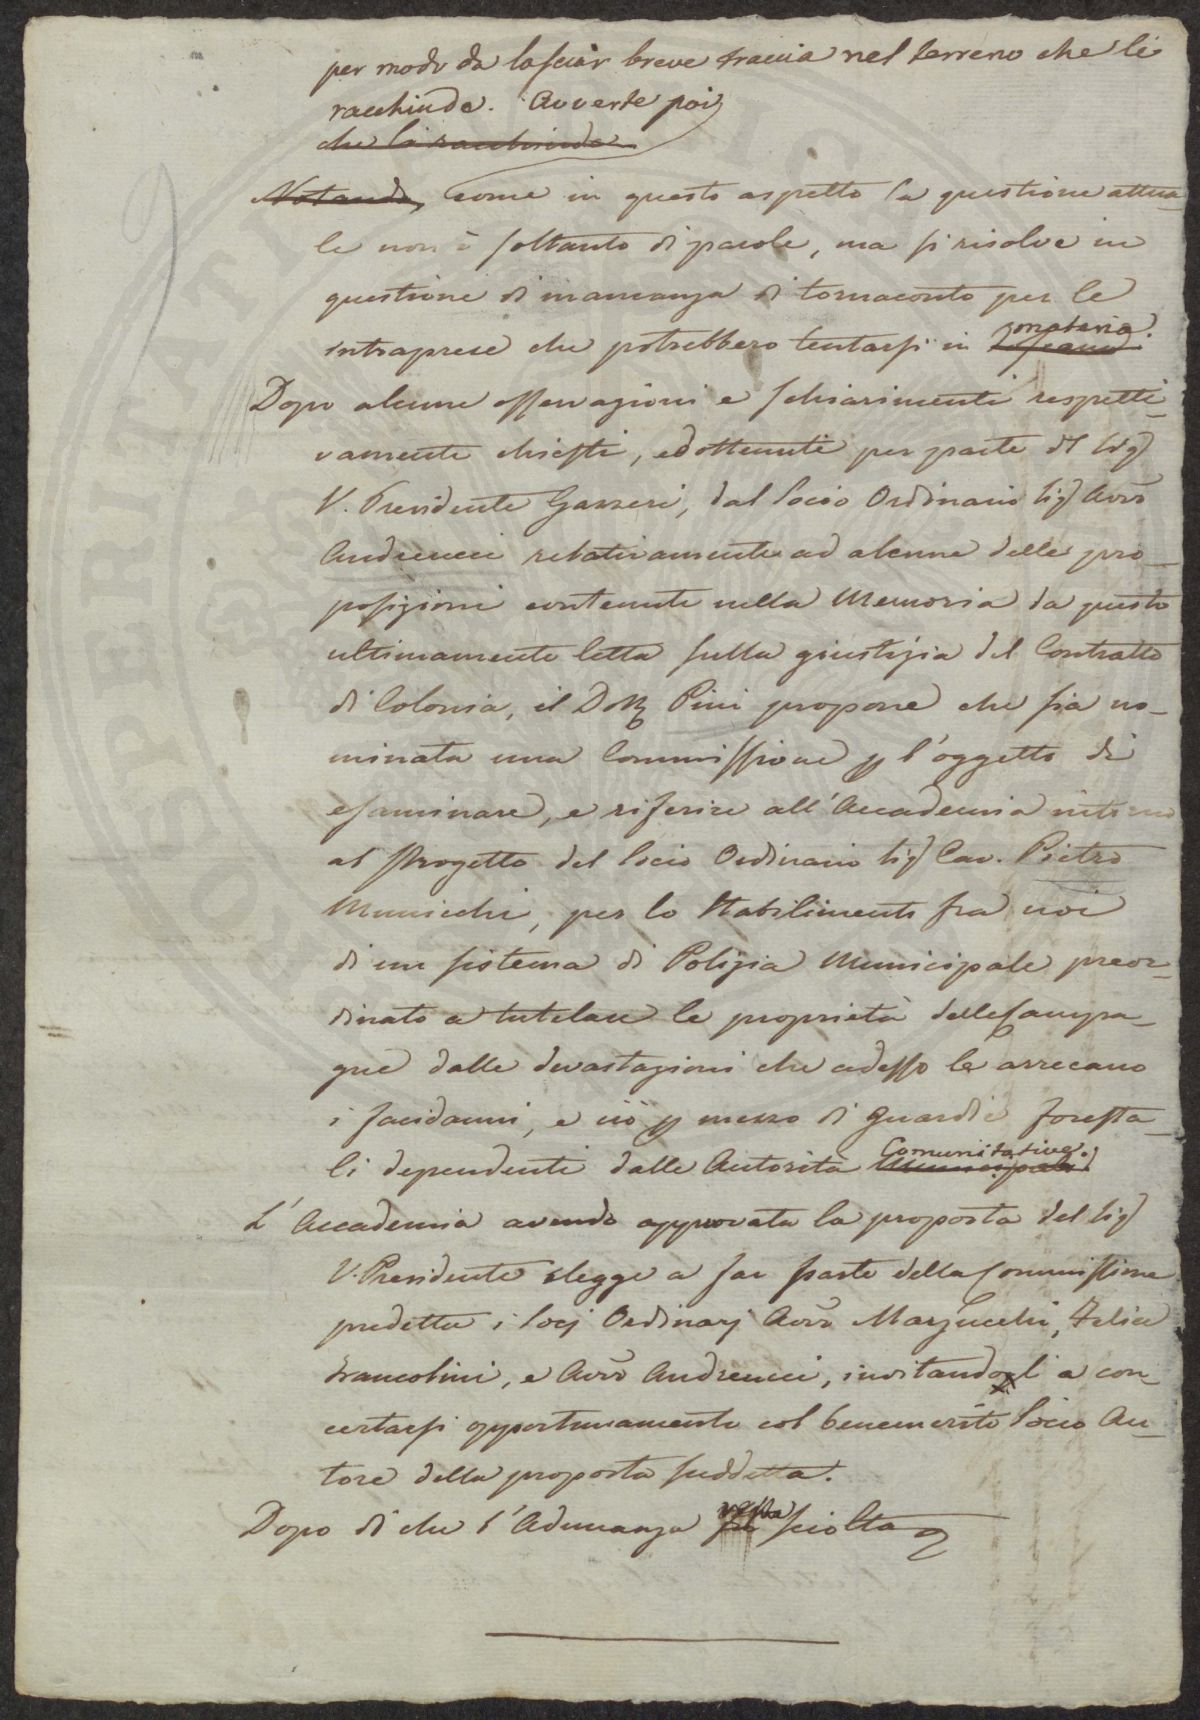 per modo da lasciar breve traccia nel terreno che li
racchiude. Avverte poi
che li racchiude
Notando, come in questo aspetto la questione attua-
le non è soltanto di parole, ma si risolve in
questione di mancanza di tornaconto per le
materia.
intraprese che potrebbero tentarsi in Toscana.
Dopo alcune osservazioni e schiarimenti respetti-
vamente chiesti, ed ottenuti per parte del Sig
V. Presidente Gazzeri, dal Socio Ordinario Sig Avv
Andreucci relativamente ad alcune delle pro-
posizioni contenute nella Memoria da questo
ultimamente letta sulla giustizia del Contratto
di Colonia, il Dott Pini propone che sia no-
minata una Commissione p l'oggetto di
esaminare, e riferire all'Accademia intorno
al Progetto del Socio Ordinario Sig Cav. Pietro
Municchi, per lo Stabilimento fra noi
di un sistema di Polizia Municipale preor-
dinato a tutelare le proprietà delle Campa-
gne dalle devastazioni che adesso le arrecano
i facidanni, e ciò p mezzo di guardie foresta-
Comunitative.
li dependenti dalle Autorità Municipali.
L'Accademia avendo approvata la proposta del Sig
V. Presidente elegge a far parte della Commissione
predetta i Socj Ordinarj Avv Marzucchi, Felice
Francolini, e Avv Andreucci, invitandoli a con-
certarsi opportunamente col benemerito Socio Au-
tore della proposta suddetta.
resta
Dopo di che l'Adunanza sciolta